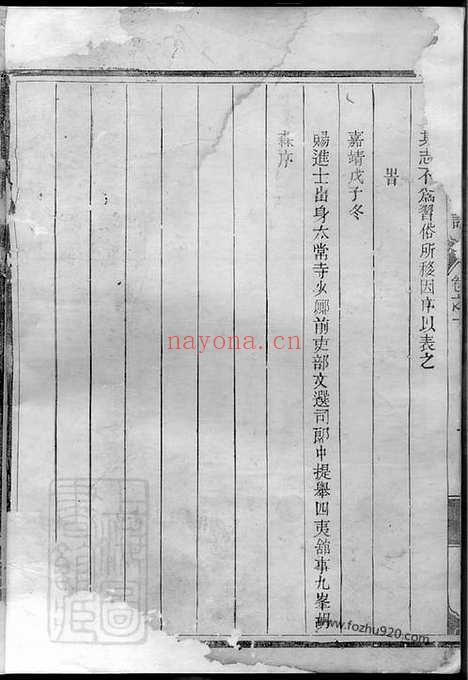 其志不爲習俗所移因序以表之
旹
嘉靖戊子冬
賜進士出身太常寺少卿前吏部文選司郎中提舉四夷舘事九峯胡
森序
nayona.cn
www.fozhu920.com